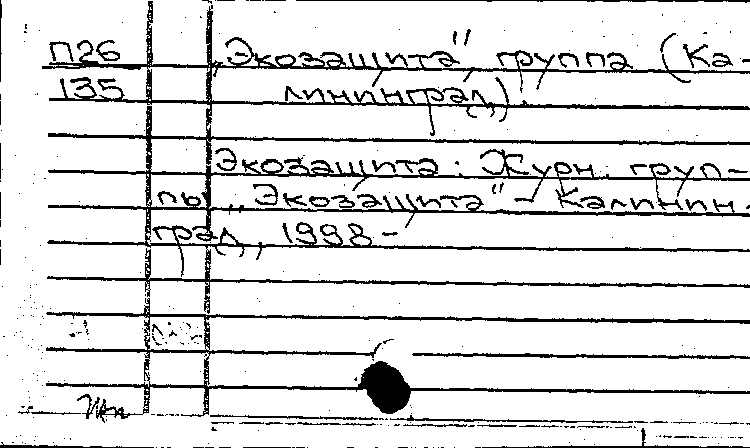 П26 „Экозащита", группа (Ка-
135 лининград).
Экозащита: Журн. груп-
пы „Экозащита" – Калинин-
град, 1998 –